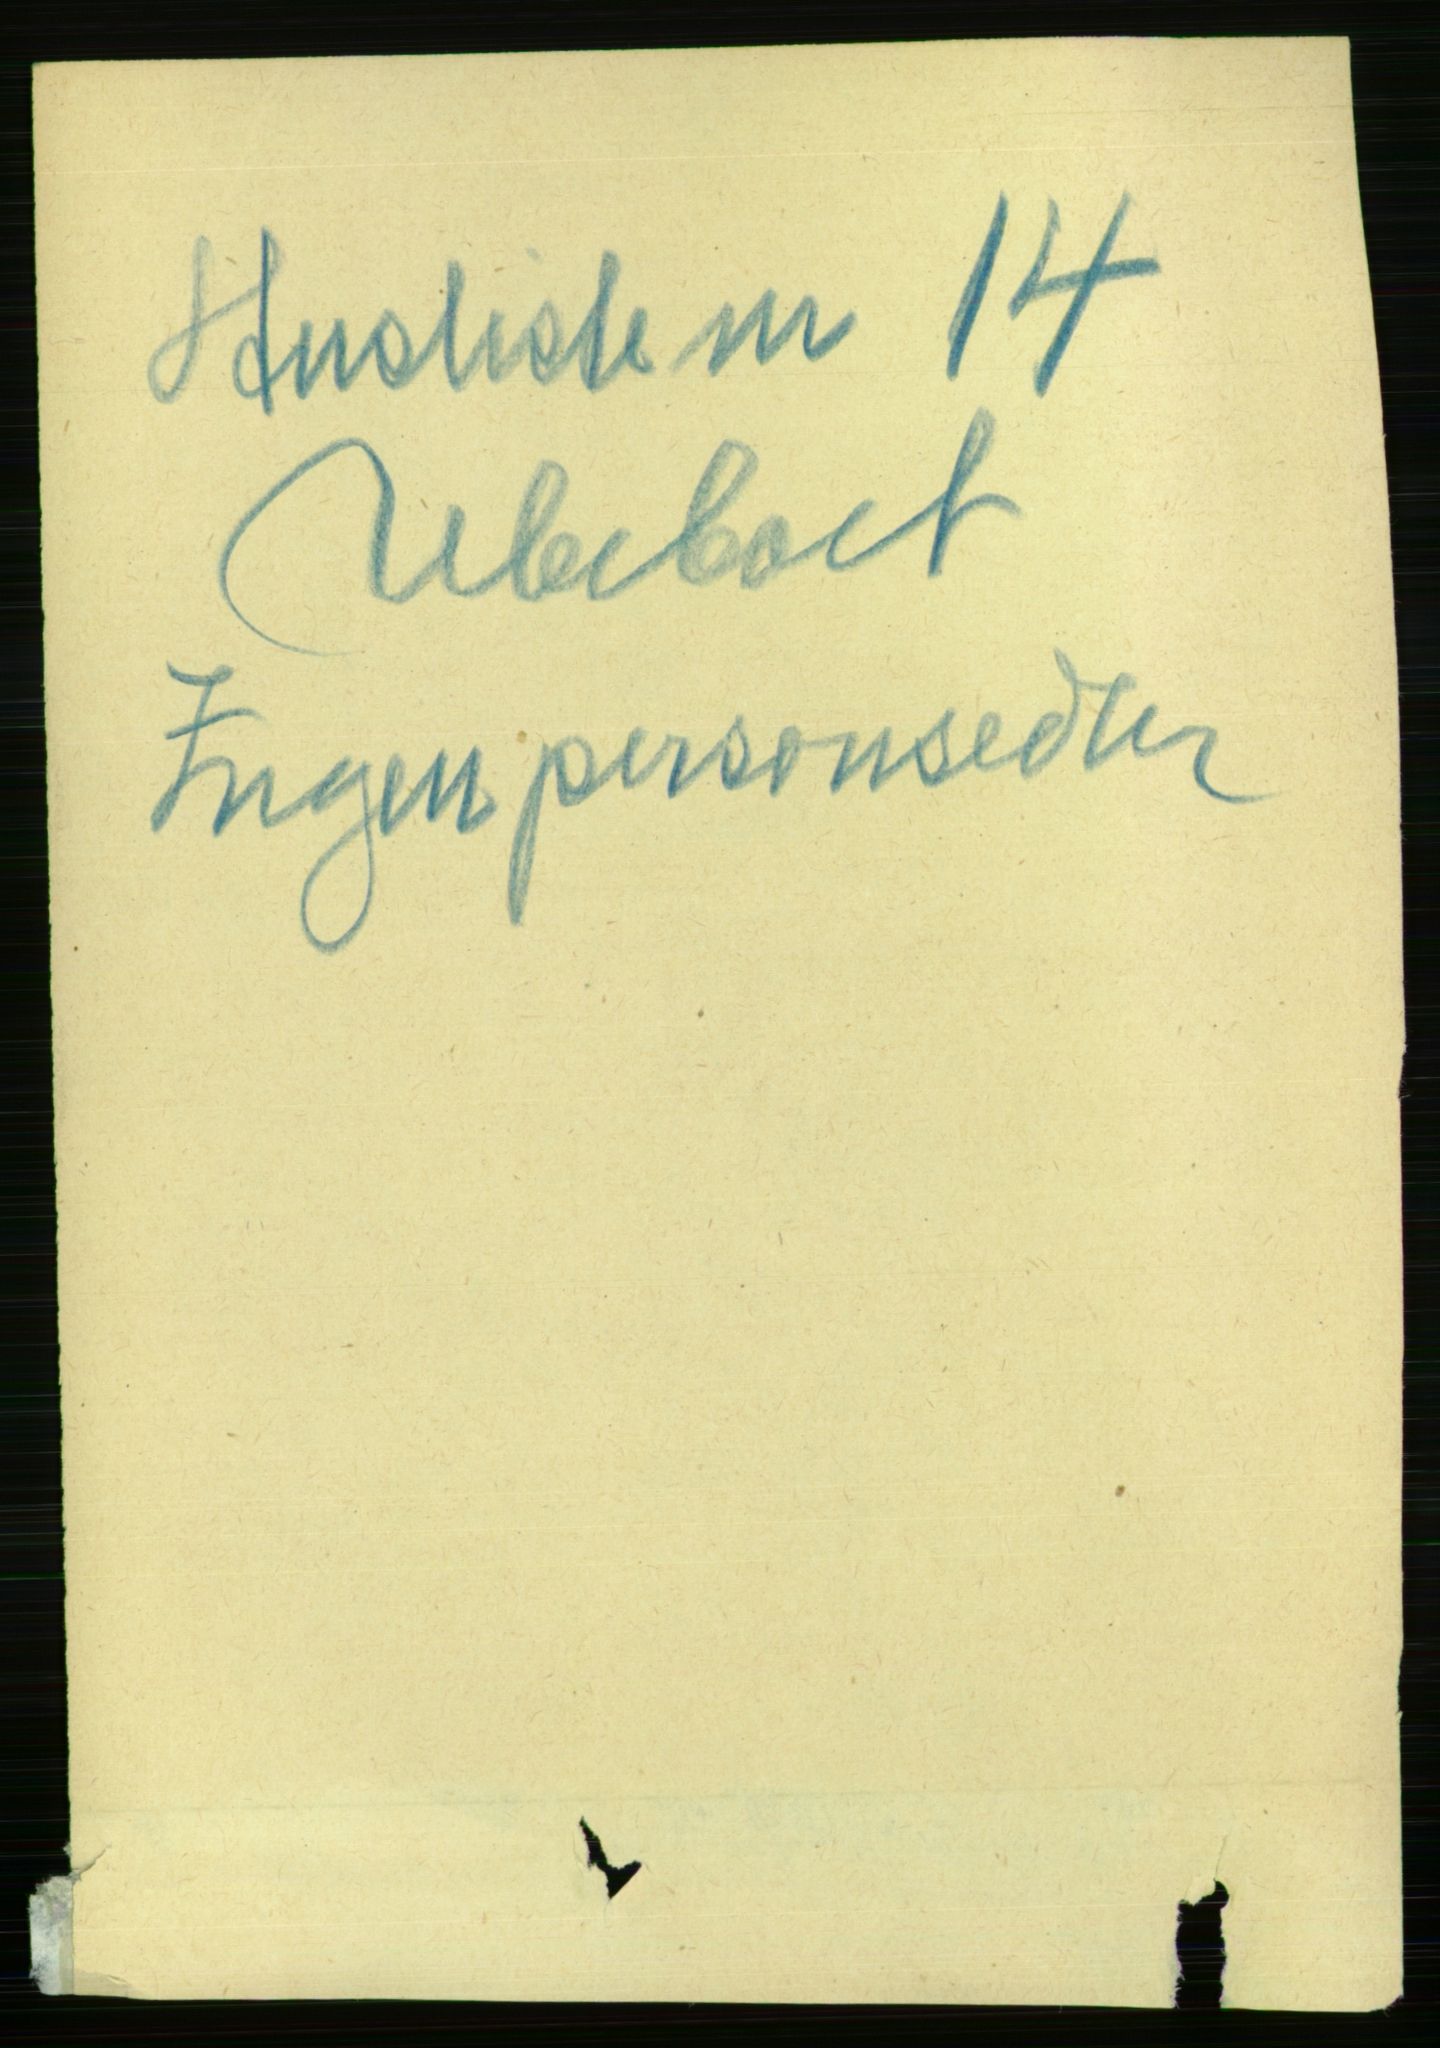 Husliste nr 14
Ubeboet
Ingen personsedler